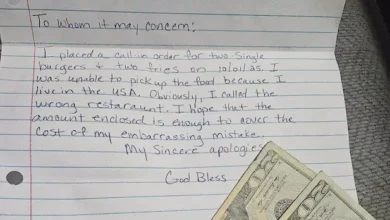 To whom it may concern:
I placed a call-in order for two single
burgers & two fries on 10/01/25. I
was unable to pick up the food because I
live in the USA. Obviously, I called the
wrong restaraunt. I hope that the
amount enclosed is enough to cover the
cost of my embarrassing mistake.
My sincere apologies
God Bless
20